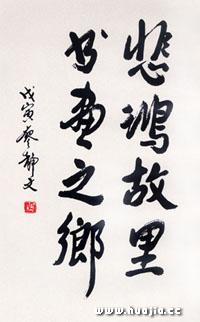 悲鸿故里
书画之鄉
戊寅廖静文
www.huajia.cc